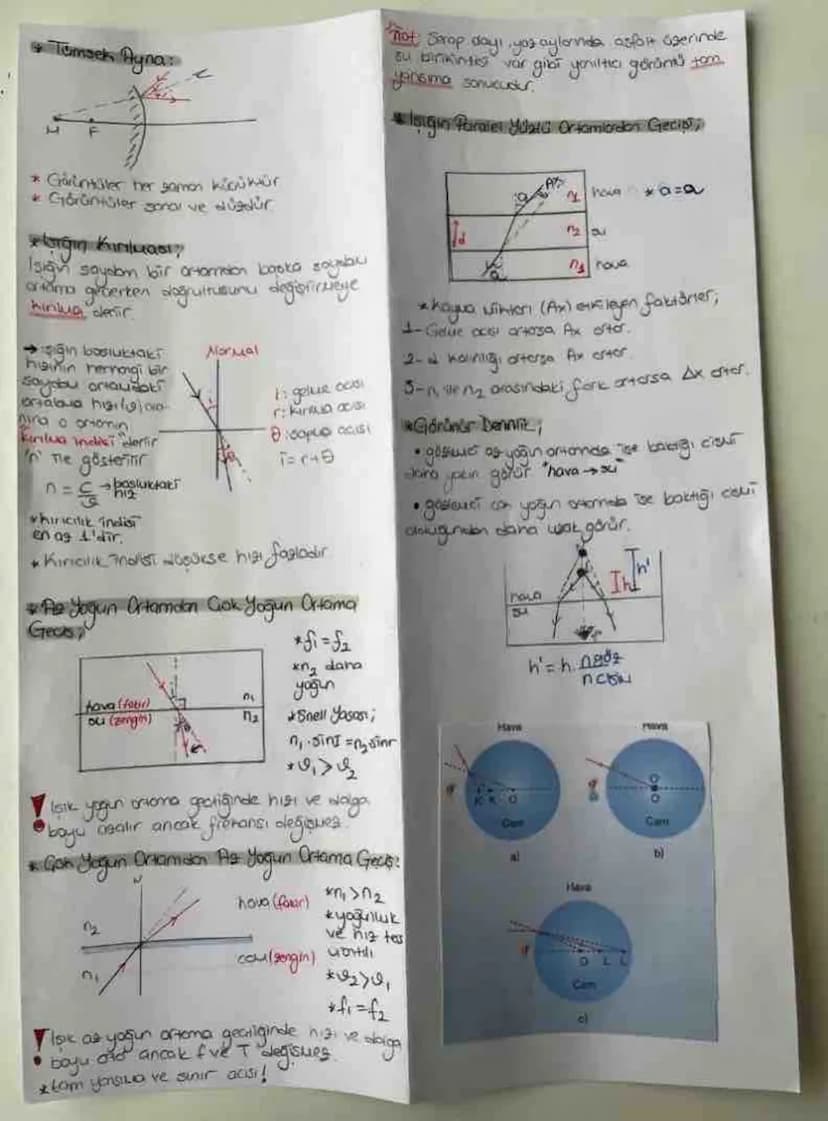 * Tümsek Ayna:
M F
* Görüntüler her zaman küçüktür
* Görüntüler sanal ve düzdür
* Işığın Kırılması;
Işığın saydam bir ortamdan başka saydam
ortama geçerken doğrultusunu değiştirmeye
kırılma denir.
→ ışığın boşluktaki
hızının herhangi bir
saydam ortamdaki
ortalama hızı(ϑ)ora-
nına o ortamın
kırılma indisi denir
'n' ile gösterilir
n = c/ϑ → boşluktaki hız
* kırıcılık indisi
en az 1'dir.
* Kırıcılık indisi düşükse hızı fazladır
Normal
i: gelme açısı
r: kırılma açısı
θ: sapma açısı
i = r + θ
* Az Yoğun Ortamdan Çok Yoğun Ortama
Geçiş;
hava (fakir) n₁
su (zengin) n₂
* f₁ = f₂
* n₂ daha
yoğun
* Snell Yasası;
n₁.sinI = n₂sinr
* ϑ₁ > ϑ₂
! Işık yoğun ortama geçtiğinde hızı ve dalga
boyu azalır ancak frekansı değişmez.
* Çok Yoğun Ortamdan Az Yoğun Ortama Geçiş:
N
n₂
n₁
hava (fakir)
cam (zengin)
* n₁ > n₂
* yoğunluk
ve hız ters
orantılı
* ϑ₂ > ϑ₁
* f₁ = f₂
! Işık az yoğun ortama geçtiğinde hızı ve dalga
boyu artar ancak f ve T değişmez.
* tam yansıma ve sınır açısı!
*not: Serap olayı, yaz aylarında asfalt üzerinde
su birikintisi var gibi yanıltıcı görüntü tam
yansıma sonucudur.
* Işığın Paralel Yüzlü Ortamlardan Geçişi;
a Δx n₁ hava * a = a
d n₂ su
a n₁ hava
* kayma miktarı (Δx) etkileyen faktörler;
1- Gelme açısı artarsa Δx artar.
2- d kalınlığı artarsa Δx artar.
3- n₁ ile n₂ arasındaki fark artarsa Δx artar.
* Görünür Derinlik;
• gözlemci az yoğun ortamda ise baktığı cismi
daha yakın görür "hava → su"
• gözlemci çok yoğun ortamda ise baktığı cismi
olduğundan daha uzak görür.
h h'
hava
su
h' = h. ngöz/ncisim
Hava
K K O
Cam
a)
Hava
O
O
Cam
b)
Hava
O L L
Cam
c)